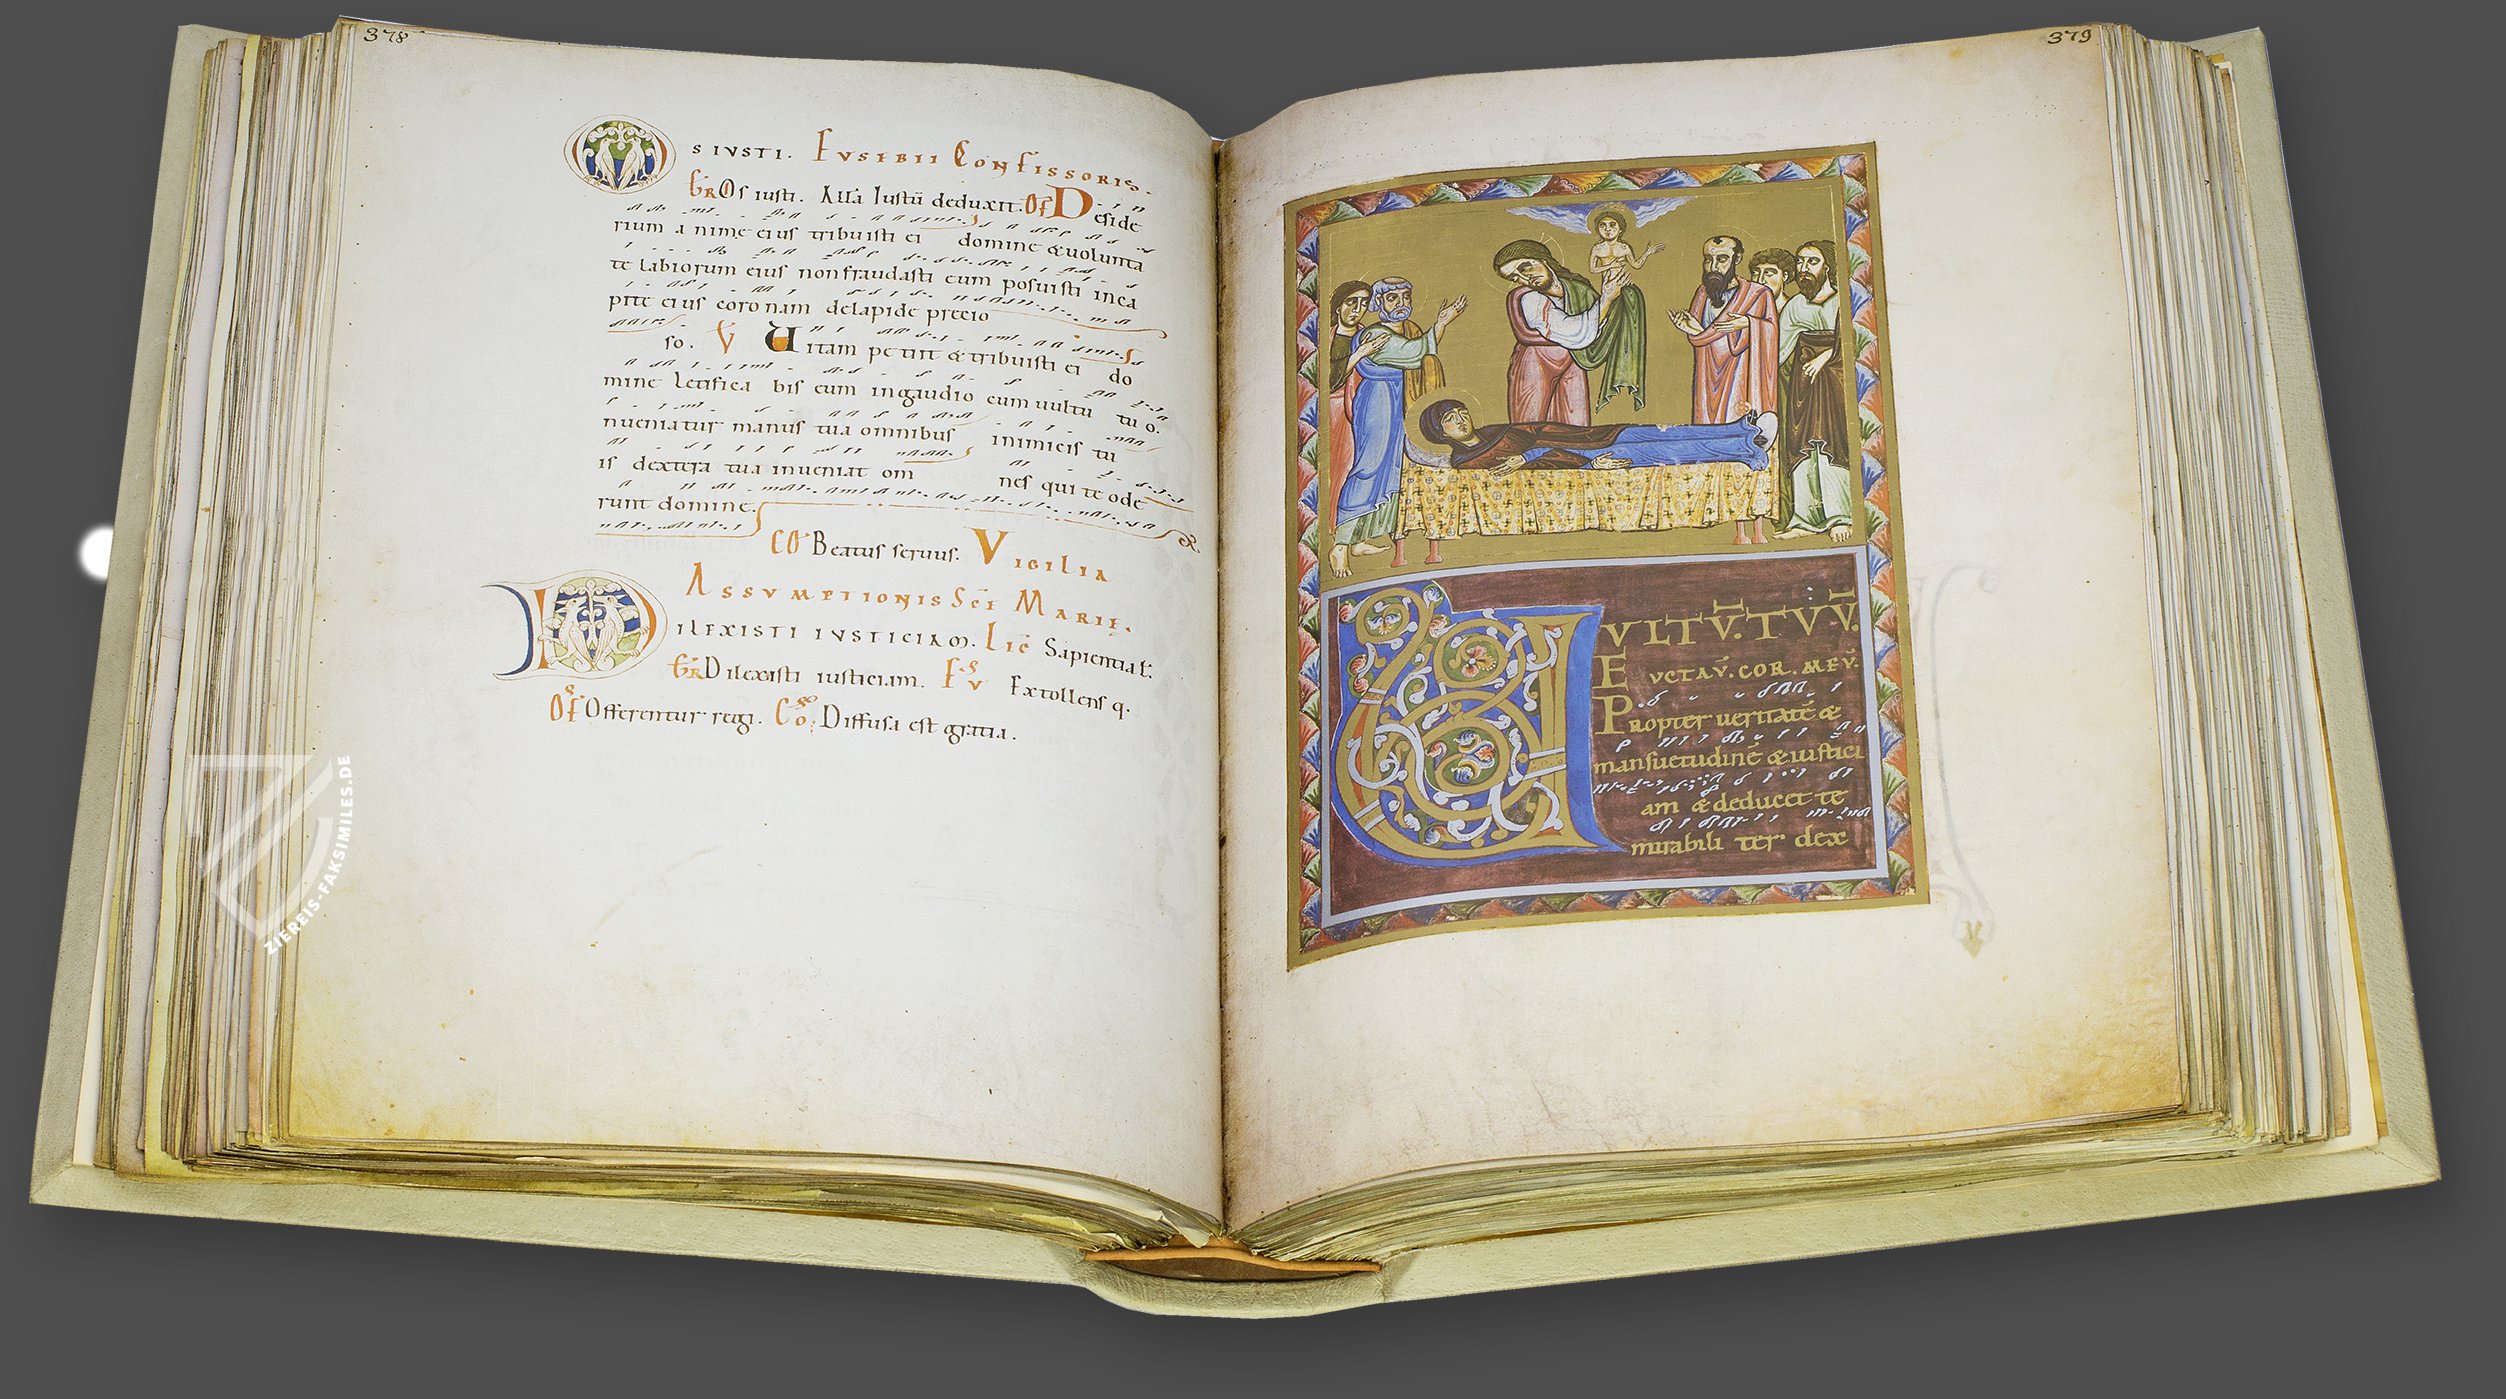 378
S IVSTI. EVSEBII CONFESSORIS.
GR Os iusti. All̄a Iustū deduxit. OF Deside
rium anime eius tribuisti ei domine & uolunta
te labiorum eius non fraudasti eum posuisti in ca
pite eius coronam de lapide precio
so. V Uitam petiit & tribuisti ei do
mine letifica bis eum in gaudio cum uultu tuo.
nueniatur manus tua omnibus inimicis tu
is dextera tua inueniat om nes qui te ode
runt domine.
CO Beatus seruus. VIGILIA
ASSVMPTIONIS SCE MARIE.
DILEXISTI IVSTICIAM. Lic Sapientiae
GR Dilexisti iusticiam. EV Extollens q.
OF Offerentur regi. CO Diffusa est gratia.
379
VVLTV̄. TVV̄.
ERVCTAV̄. COR. MEV̄.
Propter ueritatē &
mansuetudinē & iustici
am & deducet te
mirabili ter dex
ZIEREIS-FAKSIMILES.DE